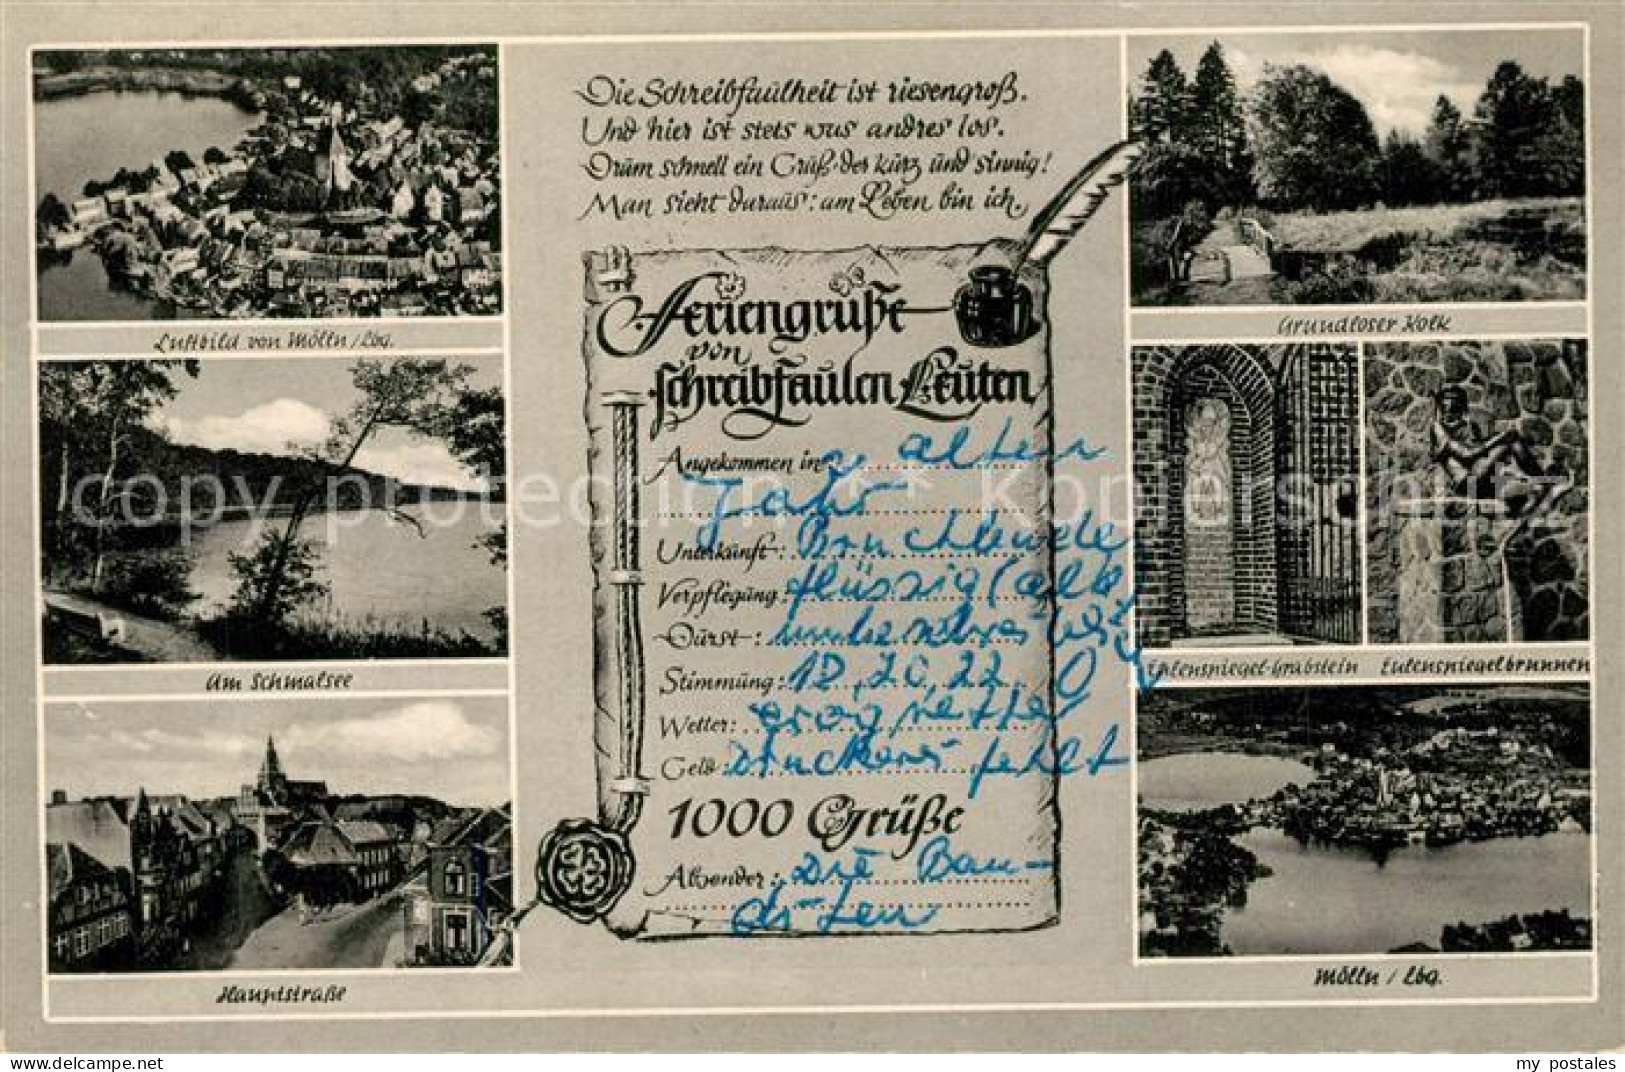 Die Schreibfaulheit ist riesengroß.
Und hier ist stets was andres los.
Drum schnell ein Gruß, der kurz und sinnig!
Man sieht daraus: am Leben bin ich.
Feriengrüße
von
schreibfaulen Leuten
Angekommen in: alten
Jahr
Unterkunft: Bruchbude
Verpflegung: flüssig (alk
Durst:
Stimmung: 18, 20, 22, 0
Wetter:
Geld: Druckerei fehlt
1000 Grüße
Absender: Die Ban-
diten
Luftbild von Mölln/Lbg.
Am Schmalsee
Hauptstraße
Grundloser Kolk
Eulenspiegel-Grabstein
Eulenspiegelbrunnen
Mölln / Lbg.
copy protection ** Kopierschutz
www.oldthing.de
my_postales